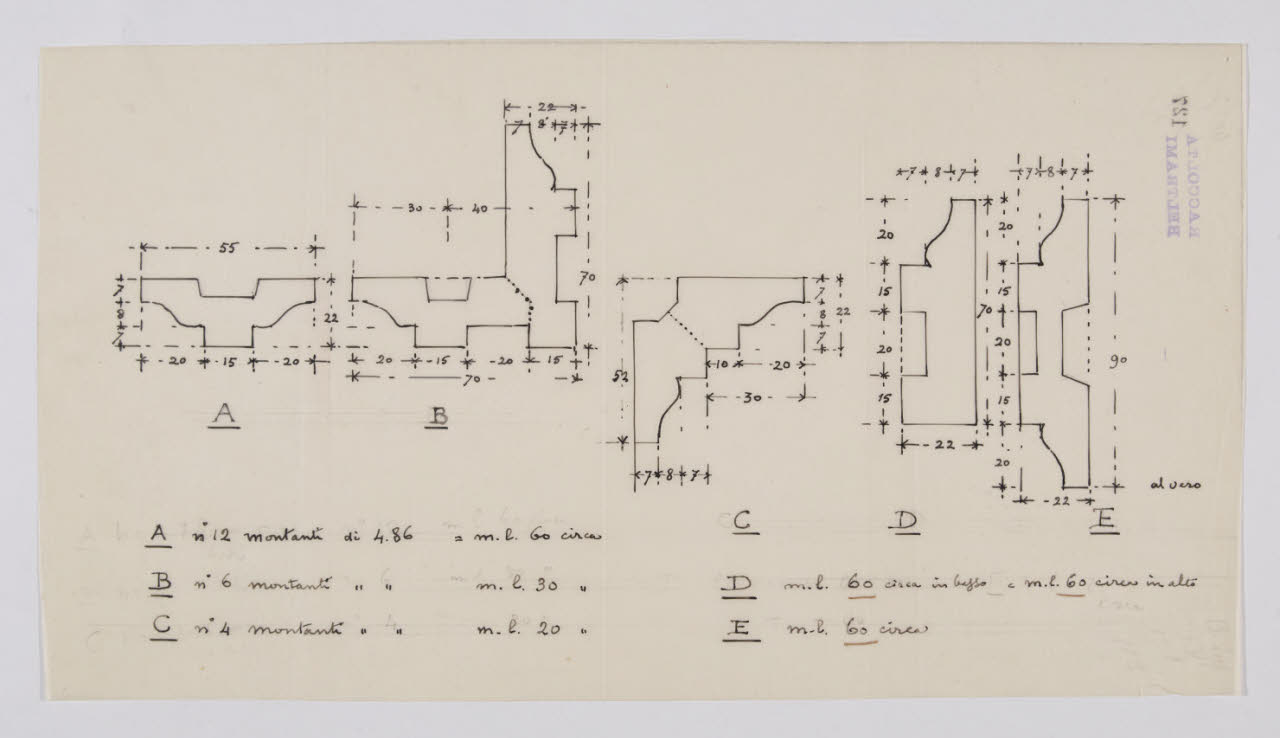 22
7 8 7
30 40
55
7 8 7
22
70
20 15 20
20 15 20 15
70
A
B
7 8 22
7
52
10 20
30
7 8 7
C
7 8 7
20
15
20
15
70
22
D
7 8 7
20
15
20
15
20
90
22
E
al vero
RACCOLTA
BELTRAMI 127
A n° 12 montanti di 4.86 = m.l. 60 circa
B n° 6 montanti " " m.l. 30 "
C n° 4 montanti " " m.l. 20 "
D m.l. 60 circa in basso = m.l. 60 circa in alto
E m.l. 60 circa